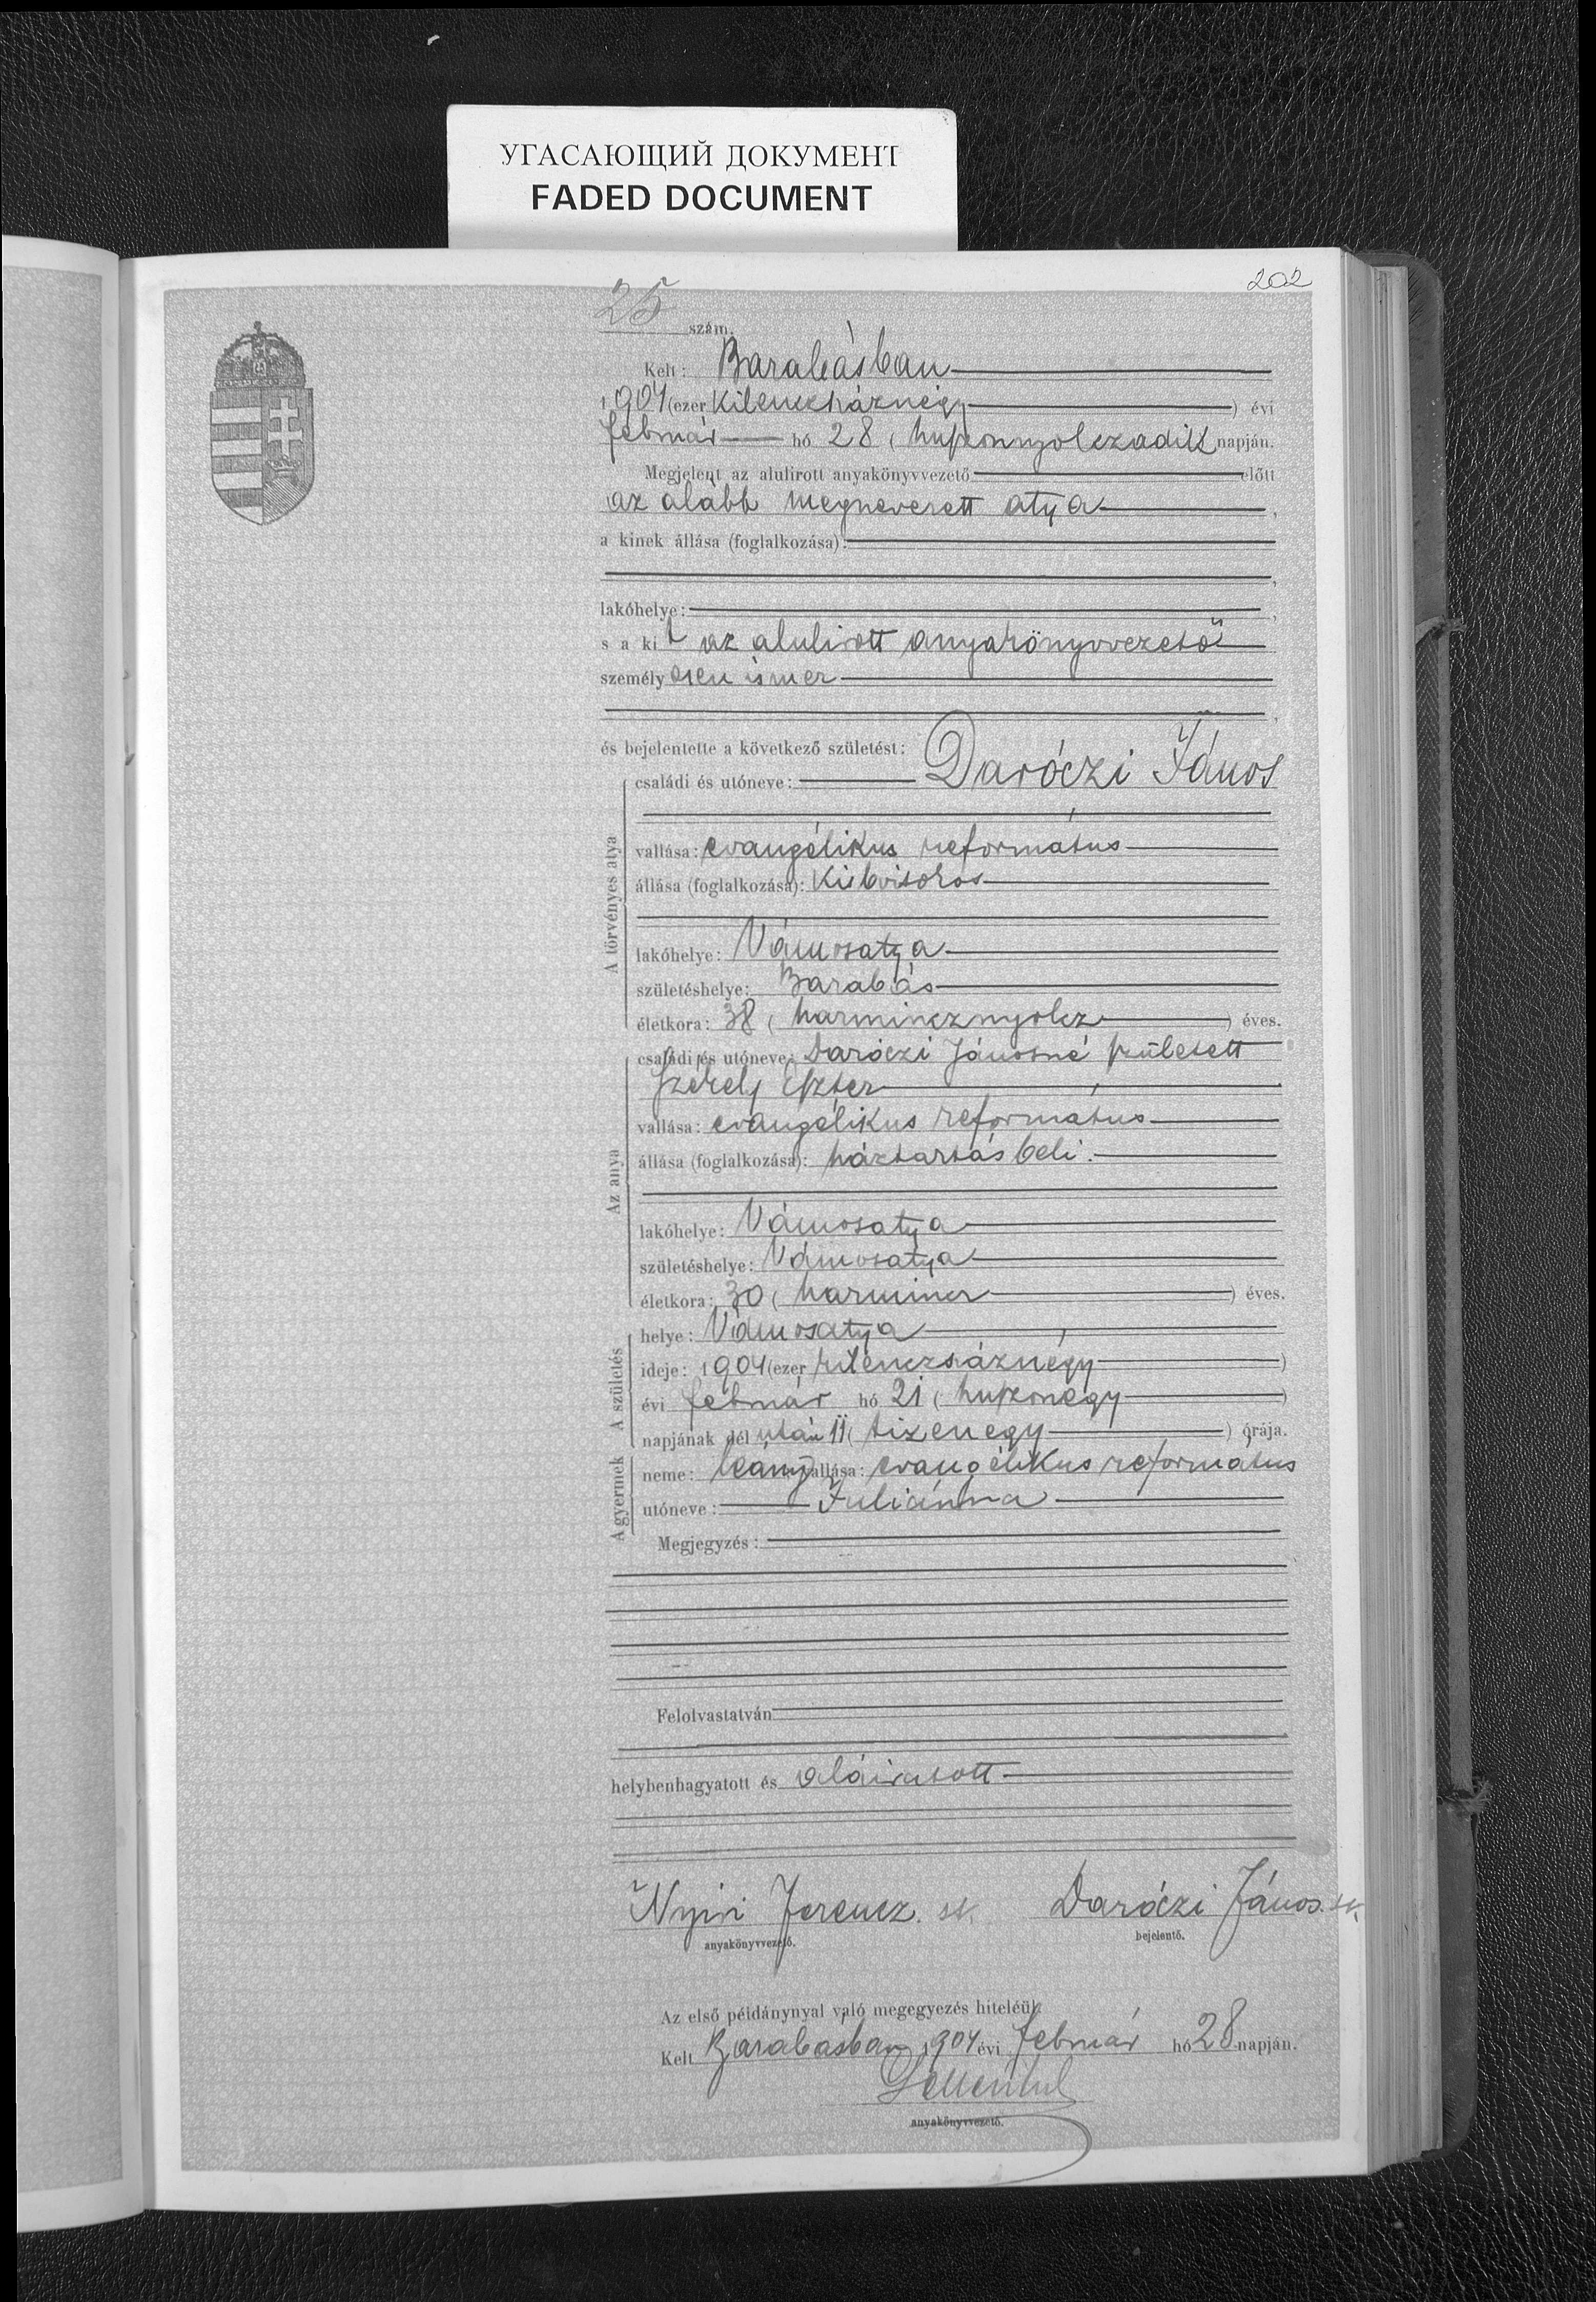 УГАСАЮЩИЙ ДОКУМЕНТ
FADED DOCUMENT
202
25 szám.
Kelt: Barabásban
1904 (ezer kilenczháznégy) évi
február hó 28 (huszonnyolczadik napján.
Megjelent az alulirott anyakönyvvezető előtt
az alább megnevezett atya,
a kinek állása (foglalkozása):
,
lakóhelye: ,
s a kit az alulirott anyakönyvvezető
személyesen ismer
,
és bejelentette a következő születést:
A törvényes atya
családi és utóneve: Daróczi János
vallása: evangélikus református
állása (foglalkozása): kisbirtokos
lakóhelye: Vámosatya
születéshelye: Barabás
életkora: 38 (harmincznyolcz) éves.
Az anya
családi és utóneve: Daróczi Jánosné született
Székely Eszter
vallása: evangélikus református
állása (foglalkozása): háztartásbeli.
lakóhelye: Vámosatya
születéshelye: Vámosatya
életkora: 30 (harmincz) éves.
A születés
helye: Vámosatya
ideje: 1904 (ezer kilenczszáznégy)
évi február hó 21 (huszonegy)
napjának dél után 11 (tizenegy) órája.
A gyermek
neme: leány vallása: evangélikus református
utóneve: Juliánna
Megjegyzés:
Felolvastatván
helybenhagyatott és aláiratott
Nyiri Ferencz. sk. Daróczi János. sk.
anyakönyvvezető. bejelentő.
Az első példánynyal való megegyezés hiteléül:
Kelt Barabásban 1904 évi február hó 28 napján.
anyakönyvvezető.